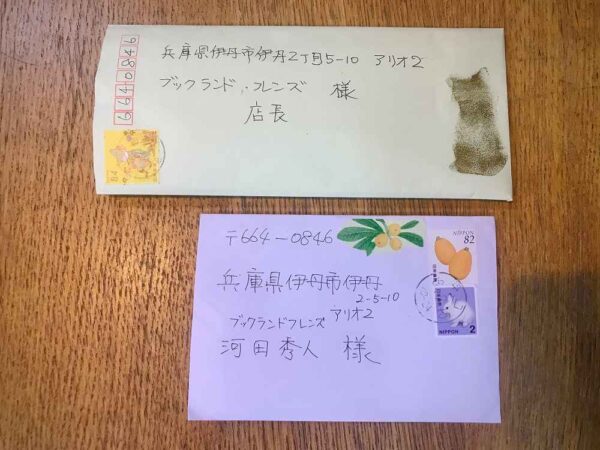 兵庫県伊丹市伊丹2丁目5-10 アリオ2
ブックランド・フレンズ 様
店長
6640846
84
〒664-0846
兵庫県伊丹市伊丹
2-5-10
ブックランドフレンズ アリオ2
河田秀人 様
NIPPON
82
日本郵便
日本郵便
NIPPON 2